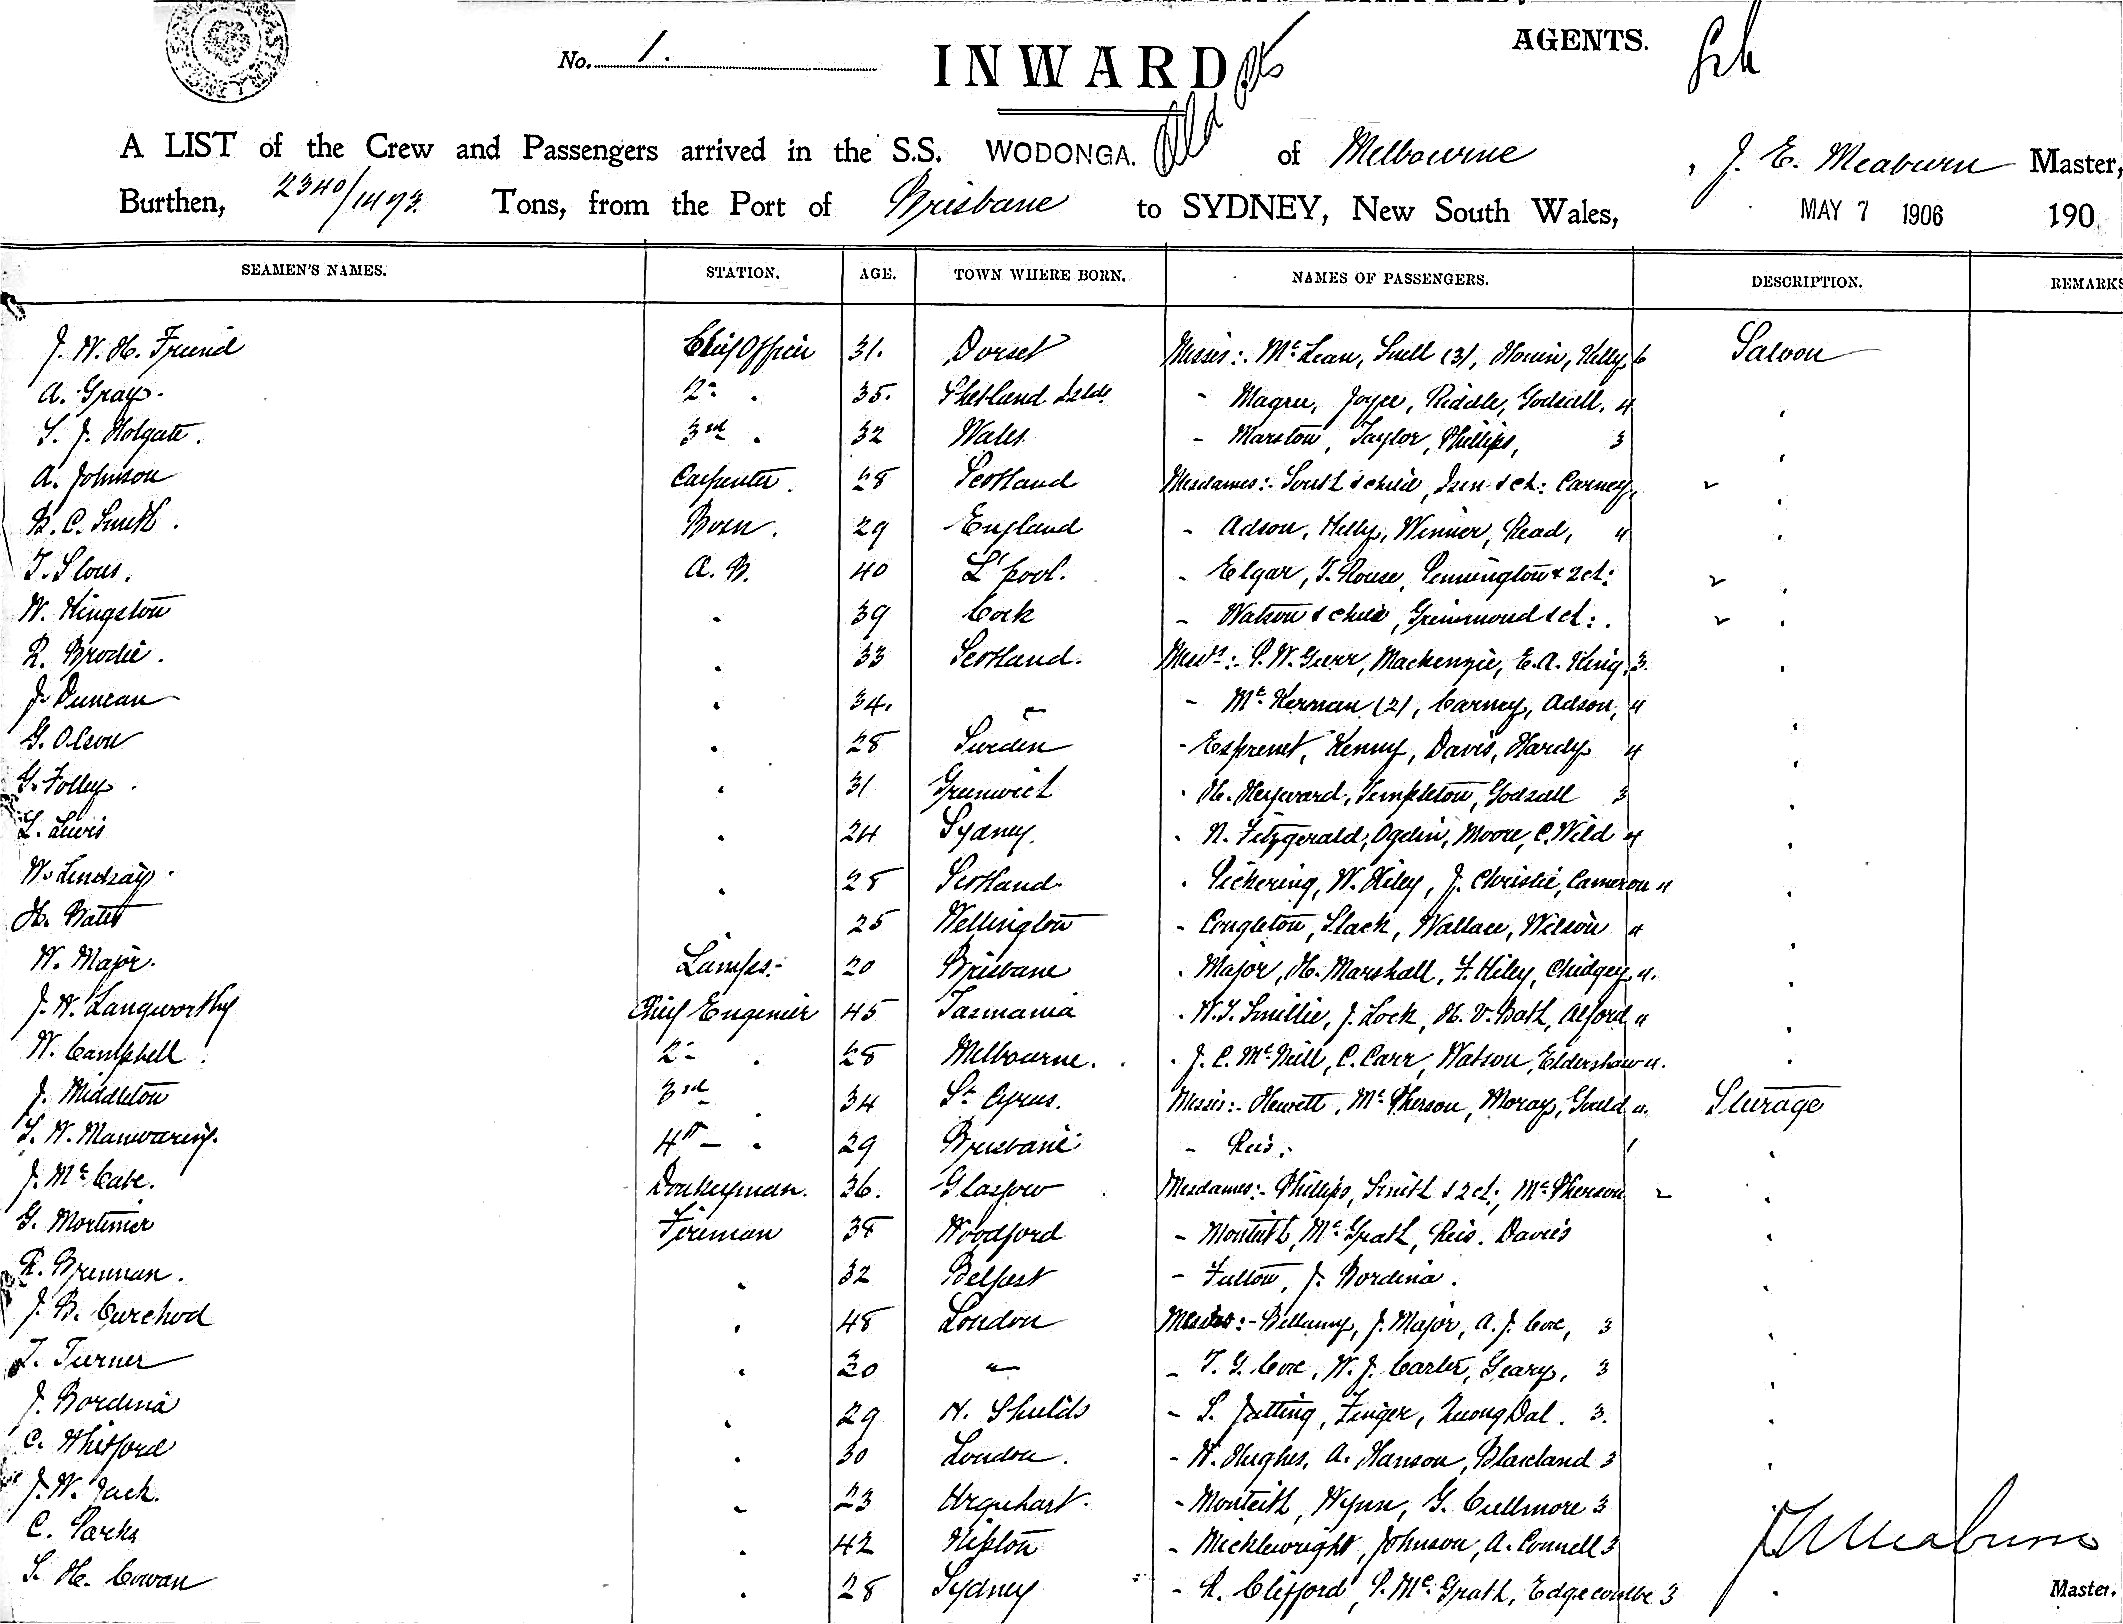 No. 1.
INWARD
AGENTS.
A LIST of the Crew and Passengers arrived in the S.S. WODONGA. of Melbourne, J. E. Meaburn Master,
Burthen, 2340/1493 Tons, from the Port of Brisbane to SYDNEY, New South Wales, MAY 7 1906 190
SEAMEN'S NAMES. STATION. AGE. TOWN WHERE BORN. NAMES OF PASSENGERS. DESCRIPTION. REMARKS
J. W. H. Friend Chief Officer 31. Dorset Misses:- McLean, Snell (3), Kelly 6 Saloon
A. Gray. 2" " 35. Shetland Islds " Magee, Joyce, Riddle, Godsall, 4 "
S. J. Holgate. 3rd " 32 Wales " Marston, Taylor, Phillips, 3 "
A. Johnson Carpenter. 28 Scotland Mesdames:- South & child, & ch: Carney, "
B. C. Smith. Bosn. 29 England " Adson, Kelly, Winner, Read, 4 "
T. Slous. A. B. 40 L'pool. " Elgar, T. Rouse, Pennington & 2 ch: "
W. Kingston " 39 Cork " Watson & child, Grimmond & ch: "
R. Brodie. " 33 Scotland. Messrs:- P. W. Geer, Mackenzie, E. A. King, 3. "
J. Duncan " 34. " " McKernan (2), Carney, Adson, 4 "
G. Olson " 28 Sweden " Esprenet, Kenny, Davis, Hardy 4 "
G. Folley. " 31 Greenwich " H. Heyward, Templeton, Godsall 3 "
L. Lewis " 24 Sydney. " N. Fitzgerald, Ogden, Moore, C. Wild 4 "
W. Lindsay. " 28 Scotland. " Pickering, W. Kiley, J. Christie, Cameron 4
H. Bates " 25 Wellington " Congleton, Slack, Wallace, Wilson 4 "
W. Major. Lamps:- 20 Brisbane " Major, H. Marshall, F. Kiley, Chidgey 4. "
J. W. Langworthy Chief Engineer 45 Tasmania " W. T. Smillie, J. Lock, H. V. Bath, Alford 4 "
W. Campbell. 2" " 28 Melbourne. " J. C. McNeill, C. Carr, Watson, Eldershaw 4. "
J. Middleton 3rd " 34 St. Cyrus. Misses:- Hewett, McPherson, Moray, Gould 4. Steerage
T. W. Manwaring. 4th " 29 Brisbane " Reis: 1 "
J. McCabe. Donkeyman. 36. Glasgow Mesdames:- Phillips, Smith & 2 ch:, McPherson "
G. Mortimer Fireman 38 Woodford " Monteith, McGrath, Reis. Davies "
R. Brennan. " 32 Belfast " Fulton, J. Bordina. "
J. B. Curchod " 48 London Messrs:- Bellamy, J. Major, A. J. Coxe, 3 "
T. Turner " 30 " " T. G. Coxe, W. J. Carter, Geary, 3 "
J. Bordina " 29 N. Shields " S. Jutting, Finger, Quong Dal. 3. "
C. Whitford " 30 London. " W. Hughes, A. Hanson, Blaxland 3 "
J. W. Jack. " 23 Urquhart. " Monteith, Wynn, G. Cullmore 3
C. Parks " 42 " Micklewright, Johnson, A. Connell 3
S. H. Cowan " 28 Sydney " R. Clifford, P. McGrath, Edgecombe 3 "
J E Meaburn
Master.